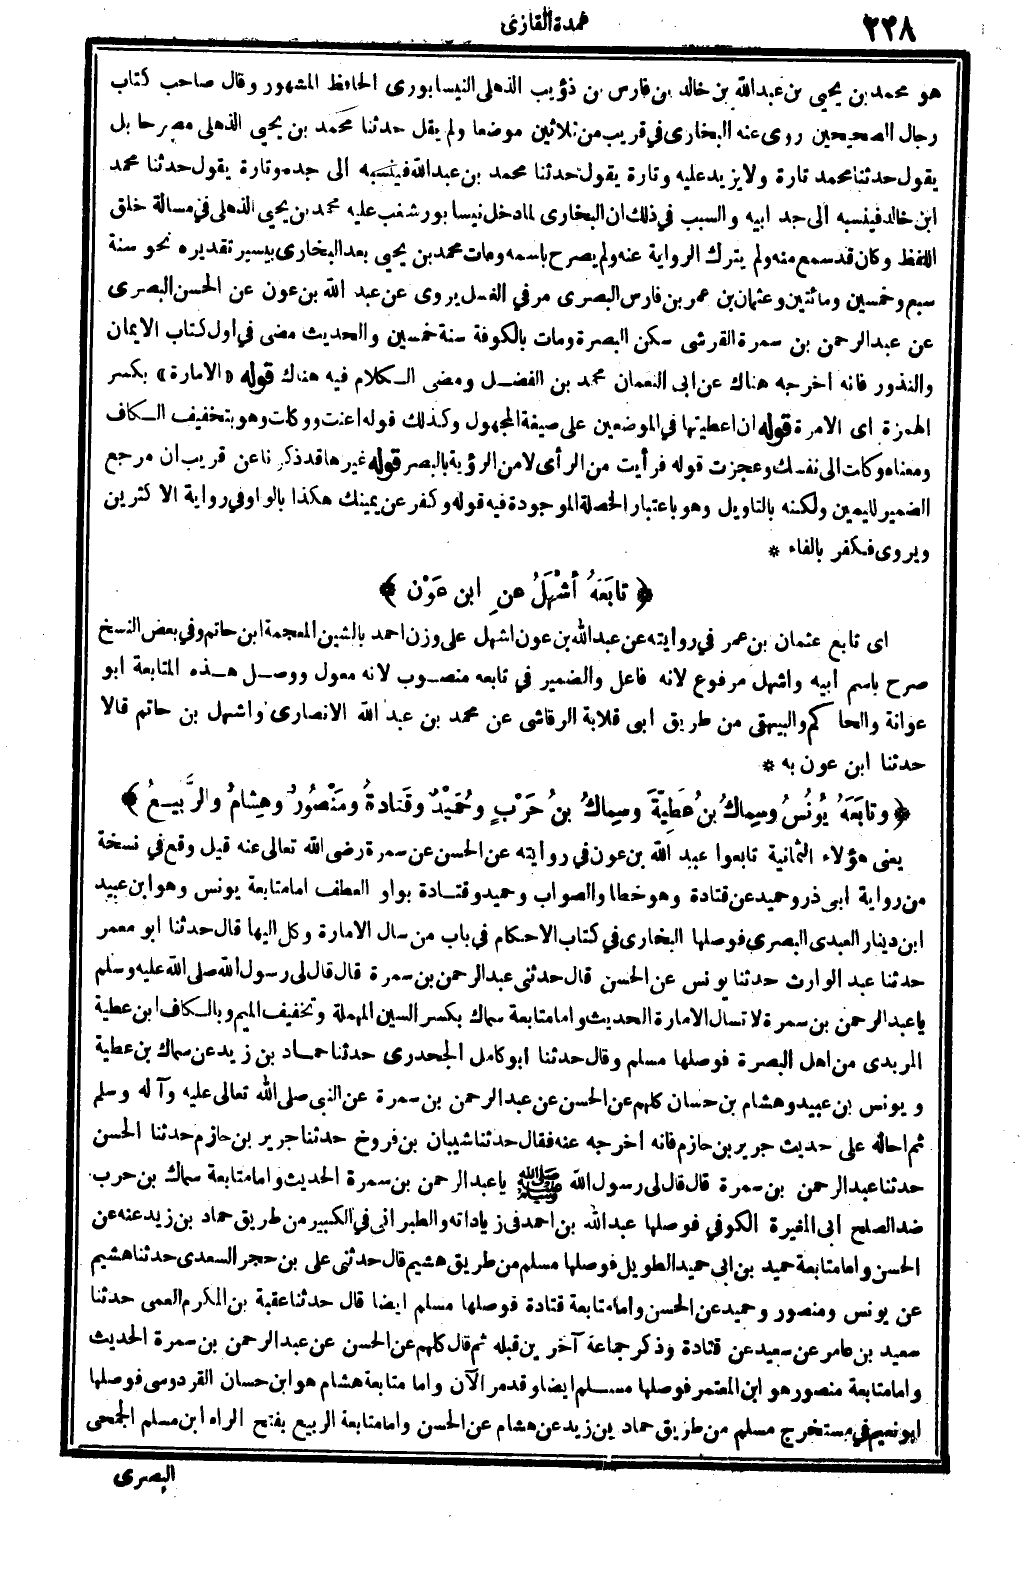 ٢٢٨
عمدة القارى
هو محمد بن يحيى بن عبد الله بن خالد بن فارس بن ذؤيب الذهلى النيسابورى الحافظ المشهور وقال صاحب كتاب
رجال الصحيحين روى عنه البخارى فى قريب من ثلاثين موضعا ولم يقل حدثنا محمد بن يحيى الذهلى مصرحا بل
يقول حدثنا محمد تارة ولا يزيد عليه وتارة يقول حدثنا محمد بن عبد الله فينسبه الى جده وتارة يقول حدثنا محمد
ابن خالد فينسبه الى جد ابيه والسبب فى ذلك ان البخارى لما دخل نيسابور شغب عليه محمد بن يحيى الذهلى فى مسالة خلق
اللفظ وكان قد سمع منه ولم يترك الرواية عنه ولم يصرح باسمه ومات محمد بن يحيى بعد البخارى بيسير تقديره نحو سنة
سبع وخمسين ومائتين وعثمان بن عمر بن فارس البصرى مر فى الغسل يروى عن عبد الله بن عون عن الحسن البصرى
عن عبد الرحمن بن سمرة القرشى سكن البصرة ومات بالكوفة سنة خمسين والحديث مضى فى اول كتاب الايمان
والنذور فانه اخرجه هناك عن ابى النعمان محمد بن الفضل ومضى الكلام فيه هناك قوله «الامارة» بكسر
الهمزة اى الامرة قوله ان اعطيتها فى الموضعين على صيغة المجهول وكذلك قوله اعنت ووكلت وهو بتخفيف الكاف
ومعناه وكلت الى نفسك وعجزت قوله فرأيت من الرأى لا من الرؤية بالبصر قوله غيرها قد ذكرنا عن قريب ان مرجع
الضمير لليمين ولكنه بالتاويل وهو باعتبار الخصلة الموجودة فيه قوله وكفر عن يمينك هكذا بالواو فى رواية الاكثرين
ويروى فكفر بالفاء *
﴿ تابَعَهُ أشْهَلُ عنِ ابنِ عَوْن ﴾
اى تابع عثمان بن عمر فى روايته عن عبد الله بن عون اشهل على وزن احمد بالشين المعجمة ابن حاتم وفى بعض النسخ
صرح باسم ابيه واشهل مرفوع لانه فاعل والضمير فى تابعه منصوب لانه معول ووصل هذه المتابعة ابو
عوانة والحاكم والبيهقى من طريق ابى قلابة الرقاشى عن محمد بن عبد الله الانصارى واشهل بن حاتم قالا
حدثنا ابن عون به *
﴿ وتابَعَهُ يُونُسُ وسِماكُ بنُ عَطِيَّةَ وسِماكُ بنُ حَرْبٍ وحُمَيْدٌ وقَتادةُ ومَنْصُورٌ وهِشامٌ والرَّبيعُ ﴾
يعنى هؤلاء الثمانية تابعوا عبد الله بن عون فى روايته عن الحسن عن سمرة رضى الله تعالى عنه قيل وقع فى نسخة
من رواية ابى ذر وحميد عن قتادة وهو خطا والصواب وحميد وقتادة بواو العطف اما متابعة يونس وهو ابن عبيد
ابن دينار العبدى البصرى فوصلها البخارى فى كتاب الاحكام فى باب من سال الامارة وكل اليها قال حدثنا ابو معمر
حدثنا عبد الوارث حدثنا يونس عن الحسن قال حدثنى عبد الرحمن بن سمرة قال قال لى رسول الله صلى الله عليه وسلم
يا عبد الرحمن بن سمرة لا تسال الامارة الحديث واما متابعة سماك بكسر السين المهملة وتخفيف الميم وبالكاف ابن عطية
المربدى من اهل البصرة فوصلها مسلم وقال حدثنا ابو كامل الجحدرى حدثنا حماد بن زيد عن سماك بن عطية
ويونس بن عبيد وهشام بن حسان كلهم عن الحسن عن عبد الرحمن بن سمرة عن النبى صلى الله تعالى عليه وآله وسلم
ثم احاله على حديث جرير بن حازم فانه اخرجه عنه فقال حدثنا شيبان بن فروخ حدثنا جرير بن حازم حدثنا الحسن
حدثنا عبد الرحمن بن سمرة قال قال لى رسول الله ﷺ يا عبد الرحمن بن سمرة الحديث واما متابعة سماك بن حرب
ضد الصلح ابى المغيرة الكوفى فوصلها عبد الله بن احمد فى زياداته والطبرانى فى الكبير من طريق حماد بن زيد عنه عن
الحسن واما متابعة حميد بن ابى حميد الطويل فوصلها مسلم من طريق هشيم قال حدثنى على بن حجر السعدى حدثنا هشيم
عن يونس ومنصور وحميد عن الحسن واما متابعة قتادة فوصلها مسلم ايضا قال حدثنا عقبة بن المكرم العمى حدثنا
سعيد بن عامر عن سعيد عن قتادة وذكر جماعة آخرين قبله ثم قال كلهم عن الحسن عن عبد الرحمن بن سمرة الحديث
واما متابعة منصور هو ابن المعتمر فوصلها مسلم ايضا وقد مر الآن واما متابعة هشام هو ابن حسان القردوسى فوصلها
ابو نعيم فى مستخرج مسلم من طريق حماد بن زيد عن هشام عن الحسن واما متابعة الربيع بفتح الراء ابن مسلم الجمحى
البصرى